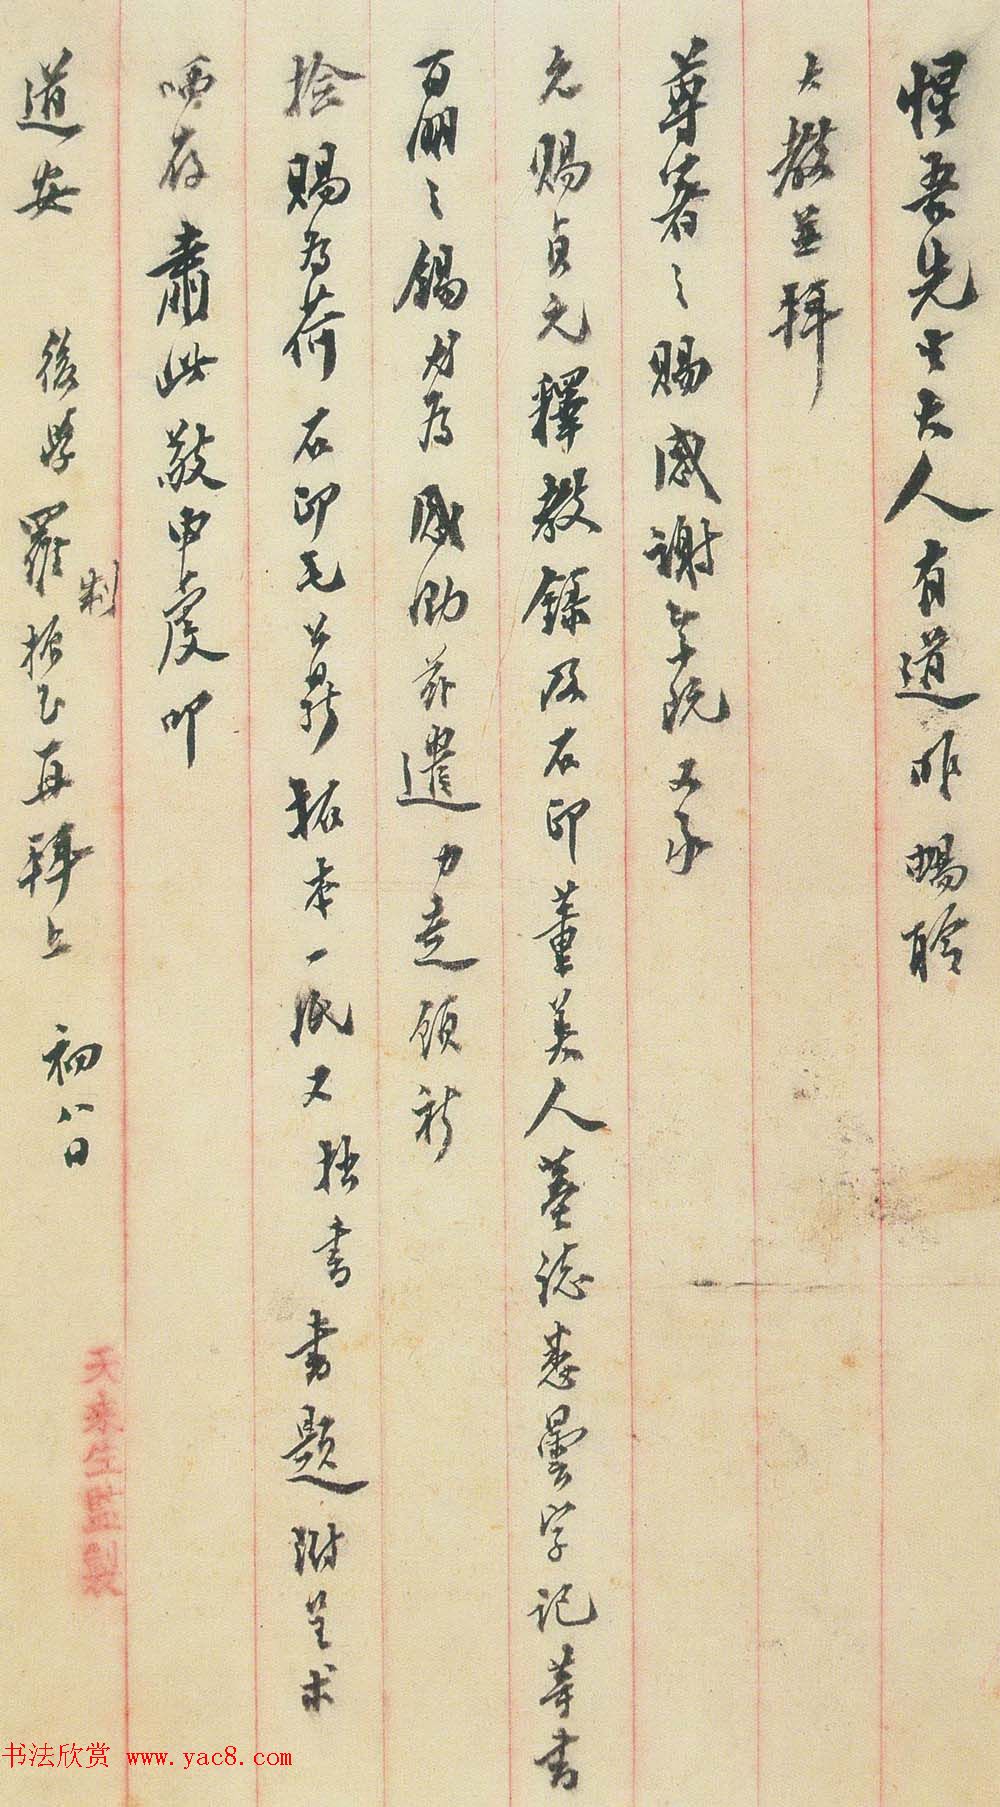 惺吾先生大人有道昨暢聆
大教並拜
尊著之賜感謝無既又承
允賜貞元釋教錄及石印董美人墓誌悉曇字記等書
百朋之錫尤為感泐茲遣力走領祈
撿賜為荷石印毛公鼎拓本一紙又拙書書題附呈求
哂存肅此敬申虔叩
道安 後學制羅振玉再拜上 初八日
天來生監製
书法欣赏 www.yac8.com